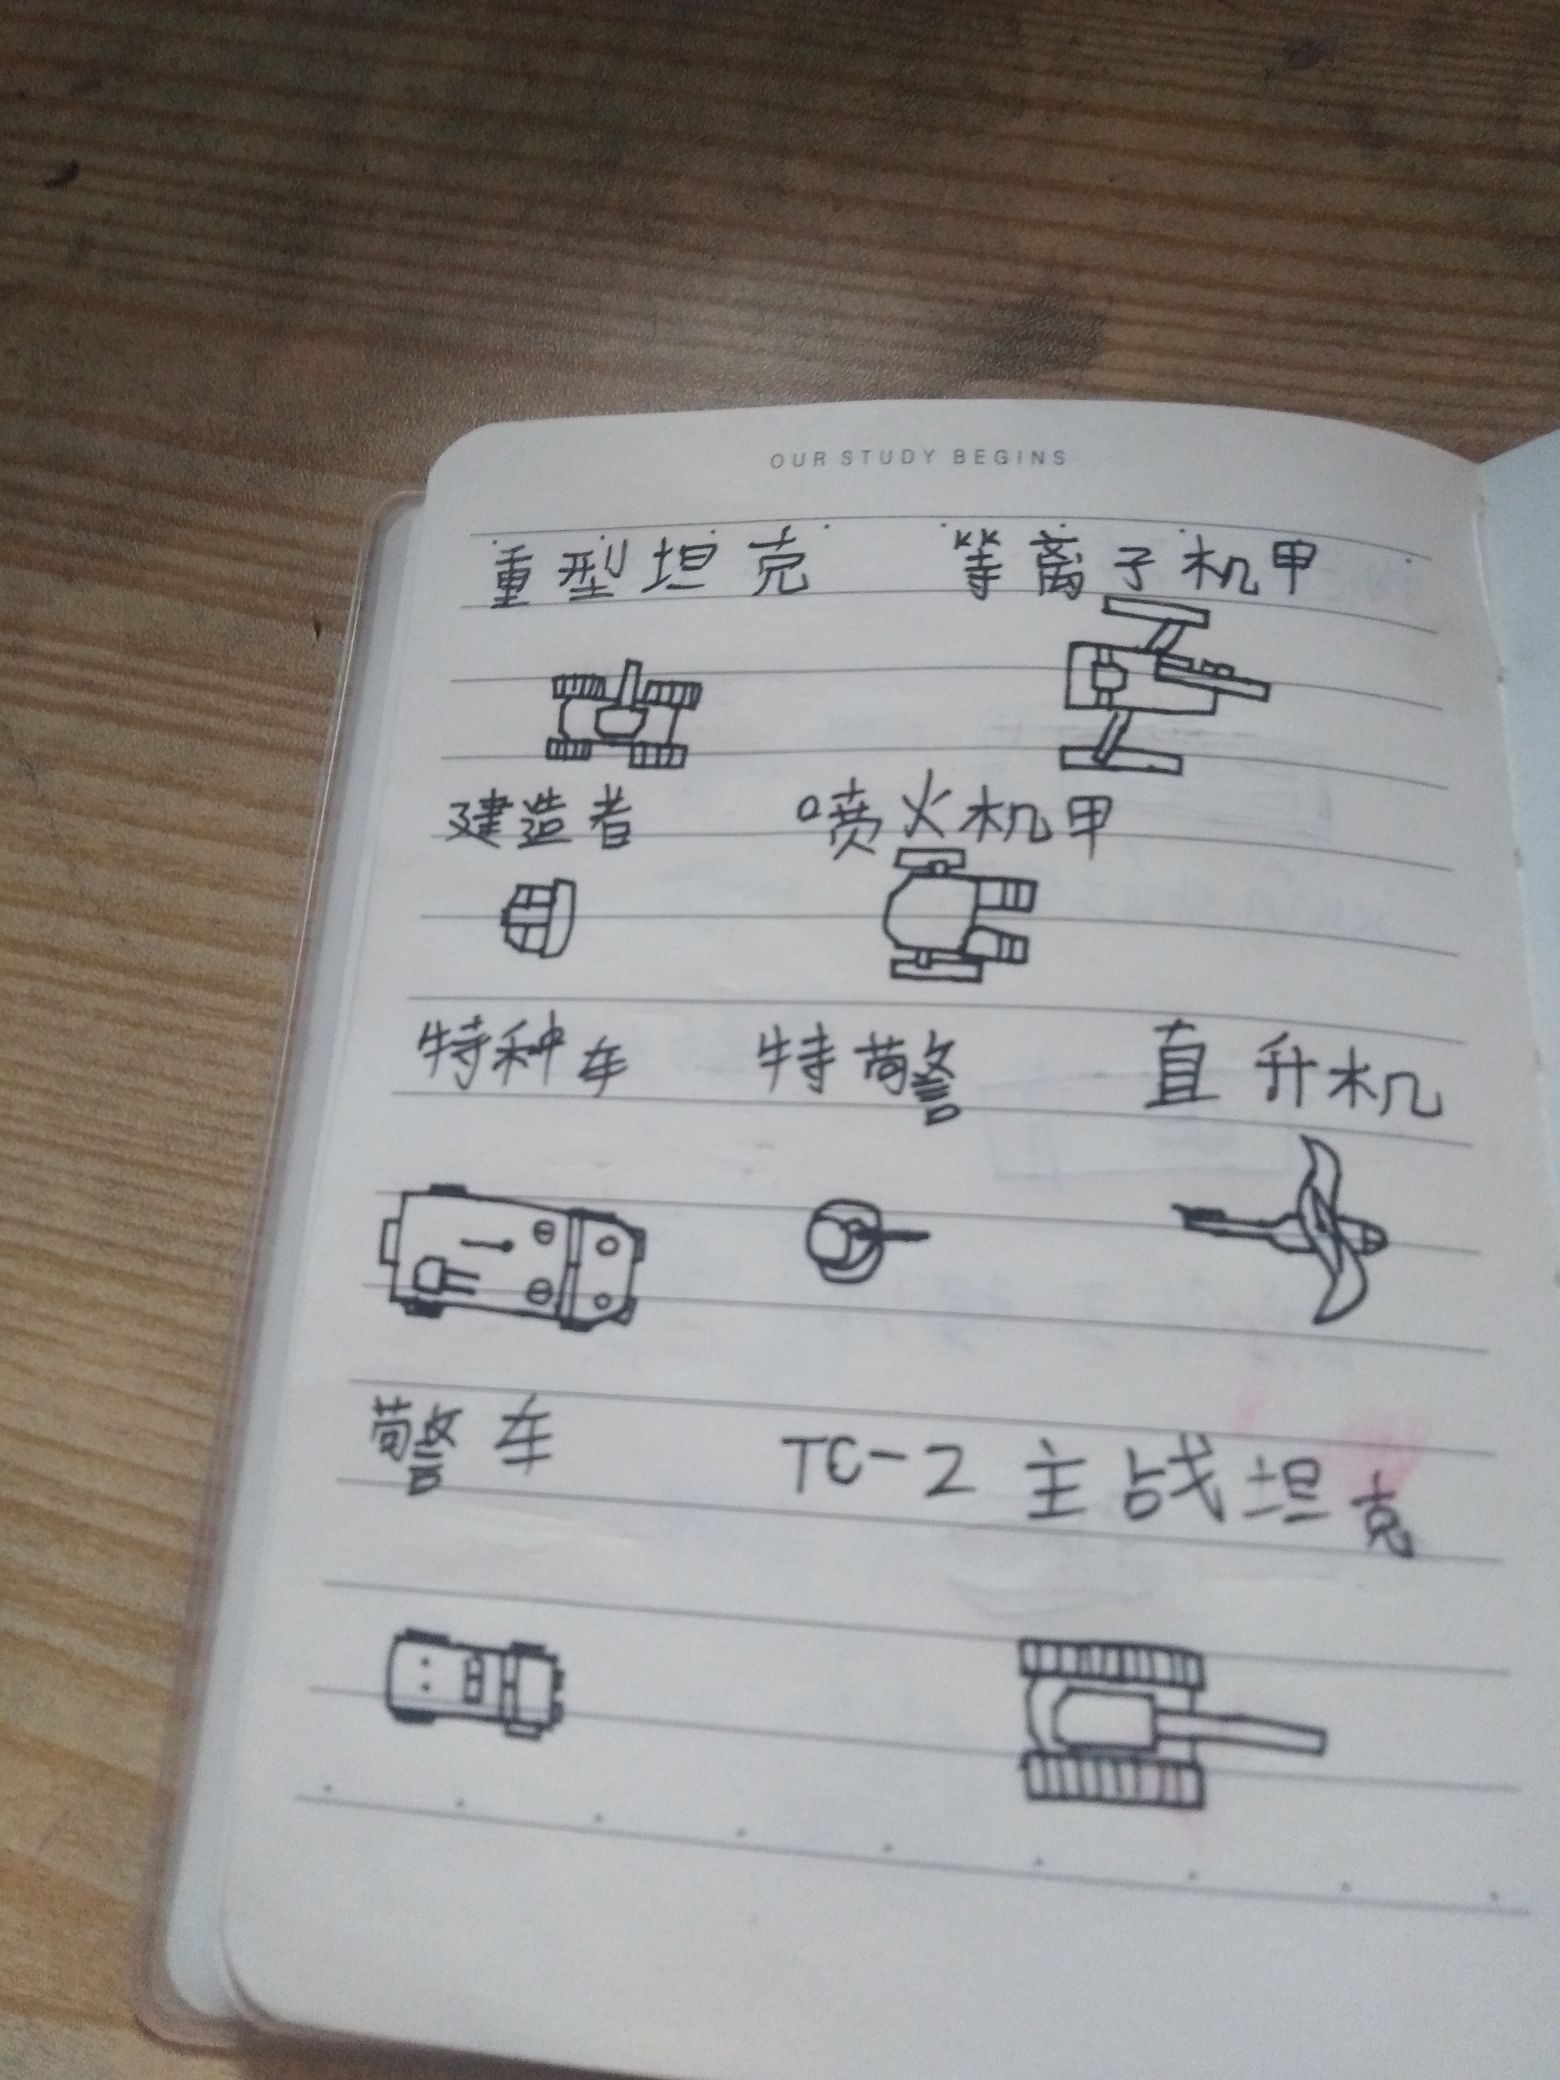 OUR STUDY BEGINS
重型坦克 等离子机甲
建造者 喷火机甲
特种车 特警 直升机
警车 TC-2 主战坦克